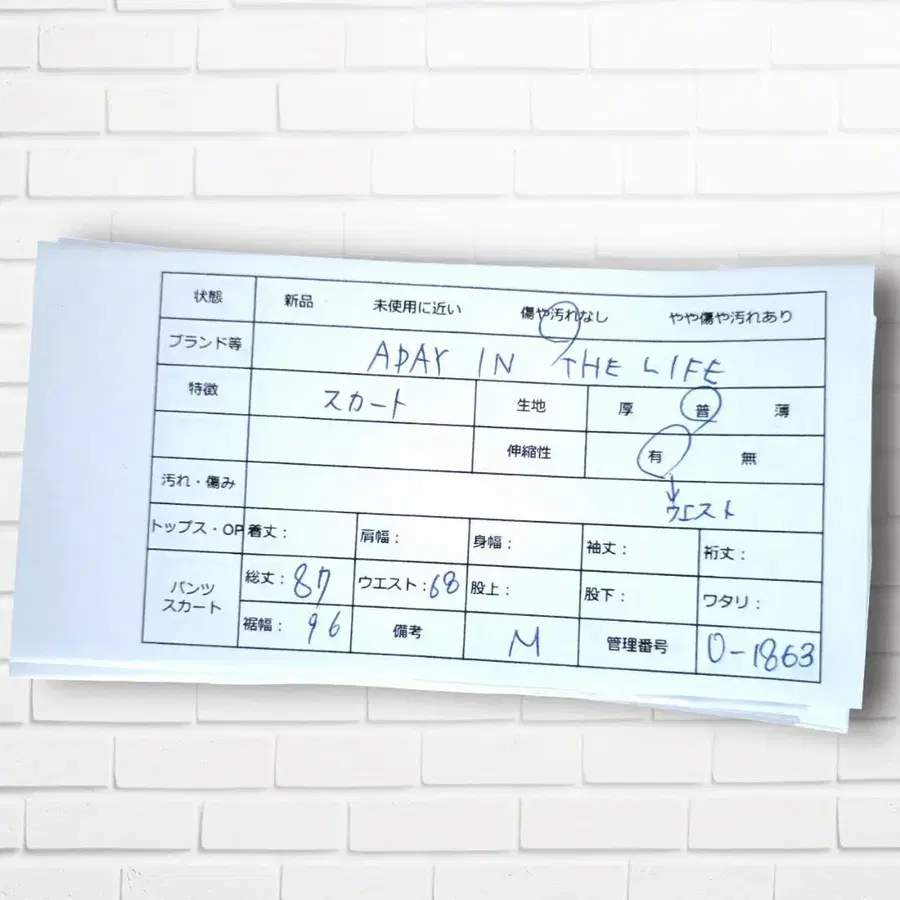 状態 新品 未使用に近い 傷や汚れなし やや傷や汚れあり
ブランド等 ADAY IN THE LIFE
特徴 スカート 生地 厚 普 薄
伸縮性 有 無
汚れ・傷み ウエスト
トップス・OP 着丈: 肩幅: 身幅: 袖丈: 裄丈:
パンツ スカート 総丈: 87 ウエスト: 68 股上: 股下: ワタリ:
裾幅: 96 備考 M 管理番号 O-1863